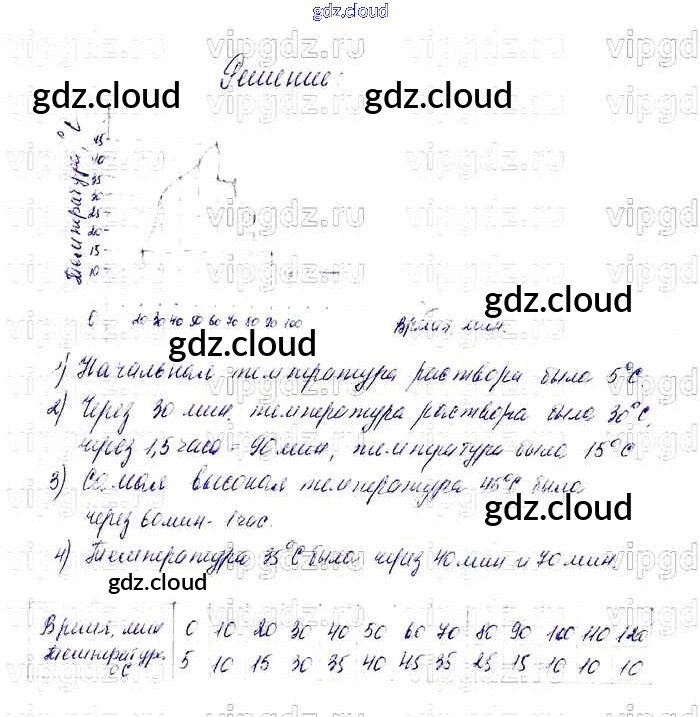 gdz.cloud
Решение:
gdz.cloud gdz.cloud
Температура, °C
45
40
35
30
25
20
15
10
0 20 30 40 50 60 70 80 90 100
Время, мин.
gdz.cloud
gdz.cloud
1) Начальная температура раствора была 5°C.
2) Через 30 мин температура раствора была 30°C,
через 1,5 часа - 90 мин, температура была 15°C
3) Самая высокая температура 45°C была
через 60 мин - 1 час.
gdz.cloud
4) Температура 35°C была через 40 мин и 70 мин.
gdz.cloud
Время, мин 0 10 20 30 40 50 60 70 80 90 100 110 120
Температура °C 5 10 15 30 35 40 45 35 25 15 10 10 10
vipgdz.ru